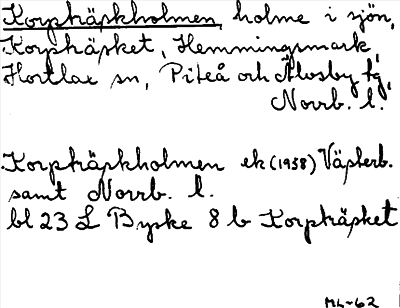 Korpträskholmen, holme i sjön,
Korpträsket, Hemmingsmark,
Hortlax sn, Piteå och Älvsby tg,
Norrb. l.
Korpträskholmen ek (1958) Västerb.
samt Norrb. l.
bl 23 L Byske 8 b Korpträsket
ML-62